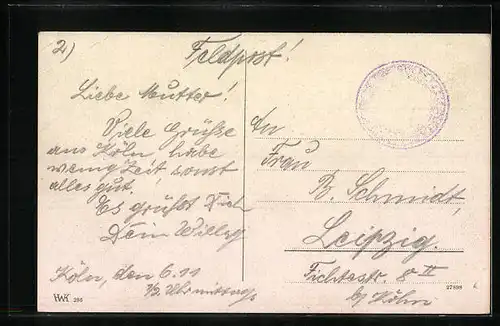 2)
Feldpost!
Liebe Mutter!
Viele Grüße
aus Köln, habe
wenig Zeit sonst
alles gut!
Es grüßt Dich
Dein Willy
Köln, den 6.11
½ Uhr mittags
HWK 266
An
Frau
B. Schmidt,
Leipzig.
Fichtestr. 8 II
b/ Kühn